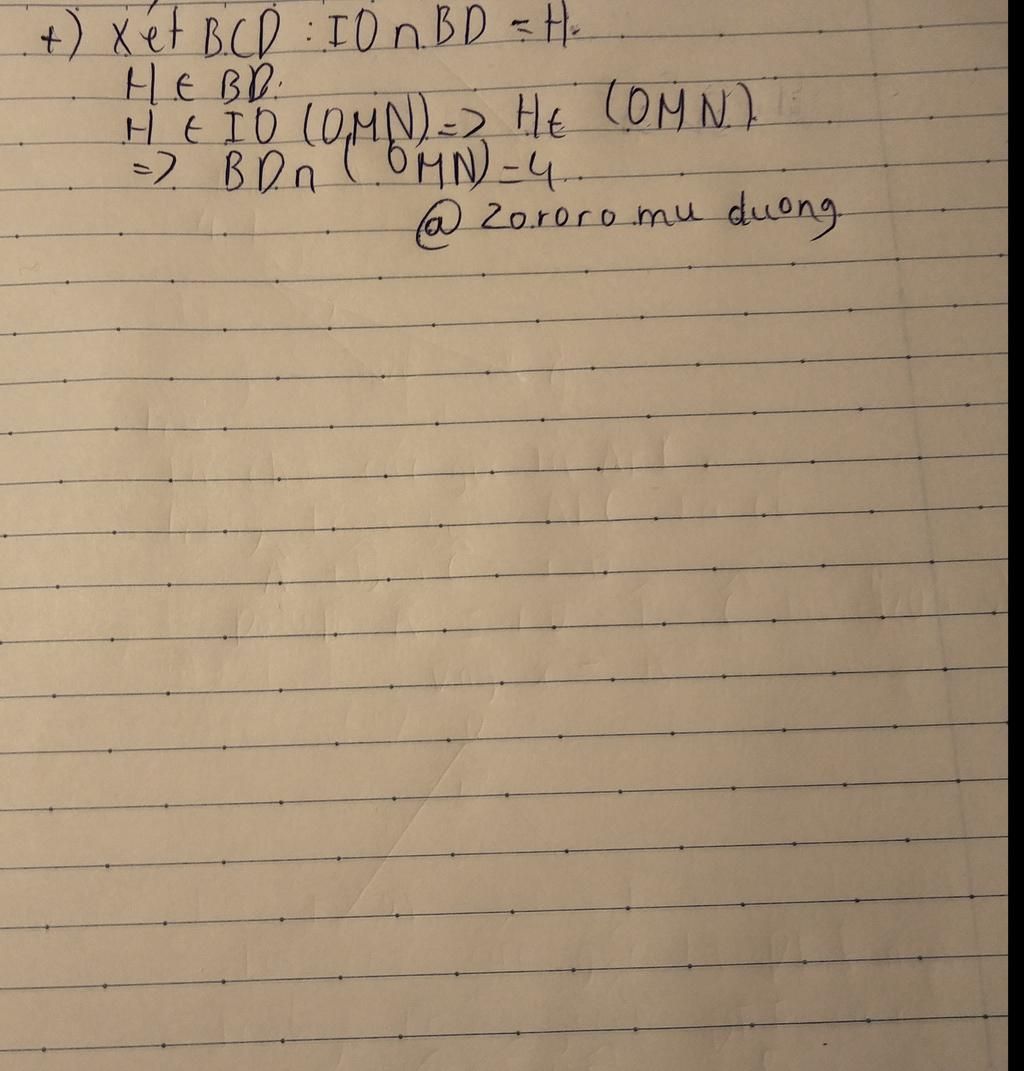 +) Xét BCD : IO ∩ BD = H.
H ∈ BD.
H ∈ IO (OMN) => H ∈ (OMN).
=> BD ∩ (OMN) = 4.
@ Zororo mu duong